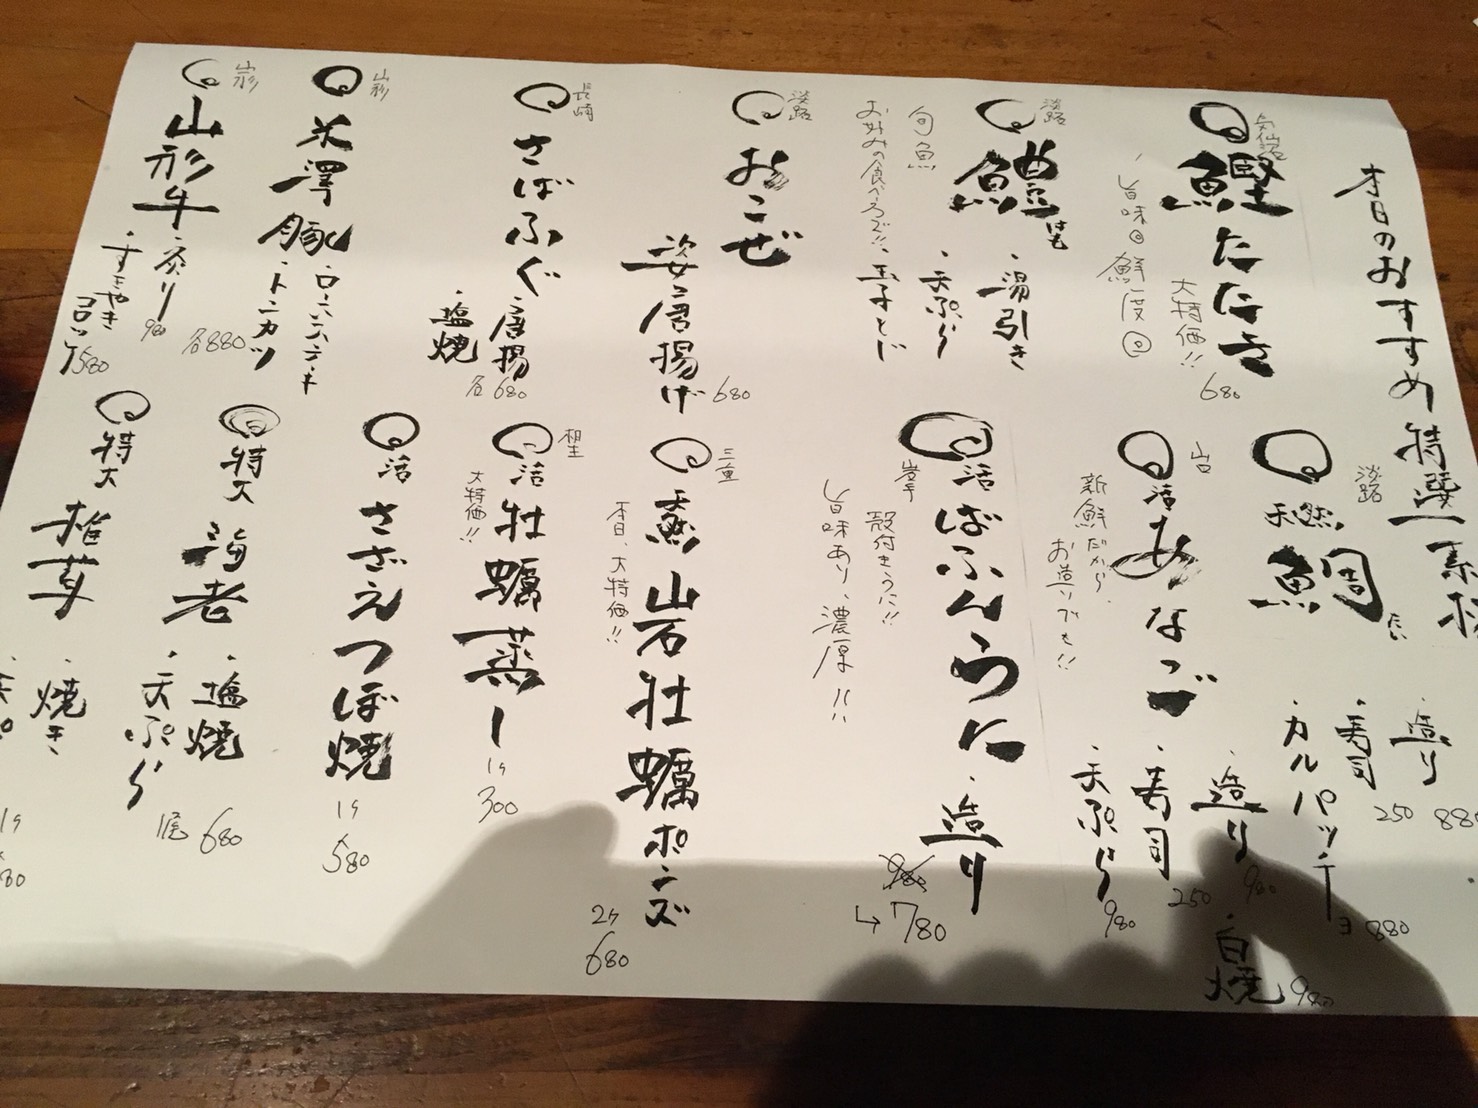 本日のおすすめ 特選素材
気仙沼
鰹たたき
大特価!!
旨味◎鮮度◎
680
淡路
鱧はも
・湯引き
・天ぷら
・玉子とじ
旬魚
お好みの食べ方で!!
淡路
おこぜ
姿唐揚げ
680
長崎
さばふぐ
・唐揚
・塩焼
各680
山形
米澤豚
・ロースステーキ
・トンカツ
各880
山形
山形牛
・炙り
980
・すきやきコロッケ
580
淡路
天然鯛たい
・造り
880
・寿司
250
・カルパッチョ
880
活あなご
新鮮だから、
お造りでも!!
・造り
980
・白焼
980
・寿司
250
・天ぷら
980
岩手
活ばふんうに
・造り
殻付きうに!!
旨味あり、濃厚!!
980
↳780
三重
燻岩牡蠣ポンズ
本日、大特価!!
2ケ
680
活牡蠣蒸し
大特価!!
1ケ
300
活さざえつぼ焼
1ケ
580
特大海老
・塩焼
・天ぷら
1尾 680
特大椎茸
・焼き